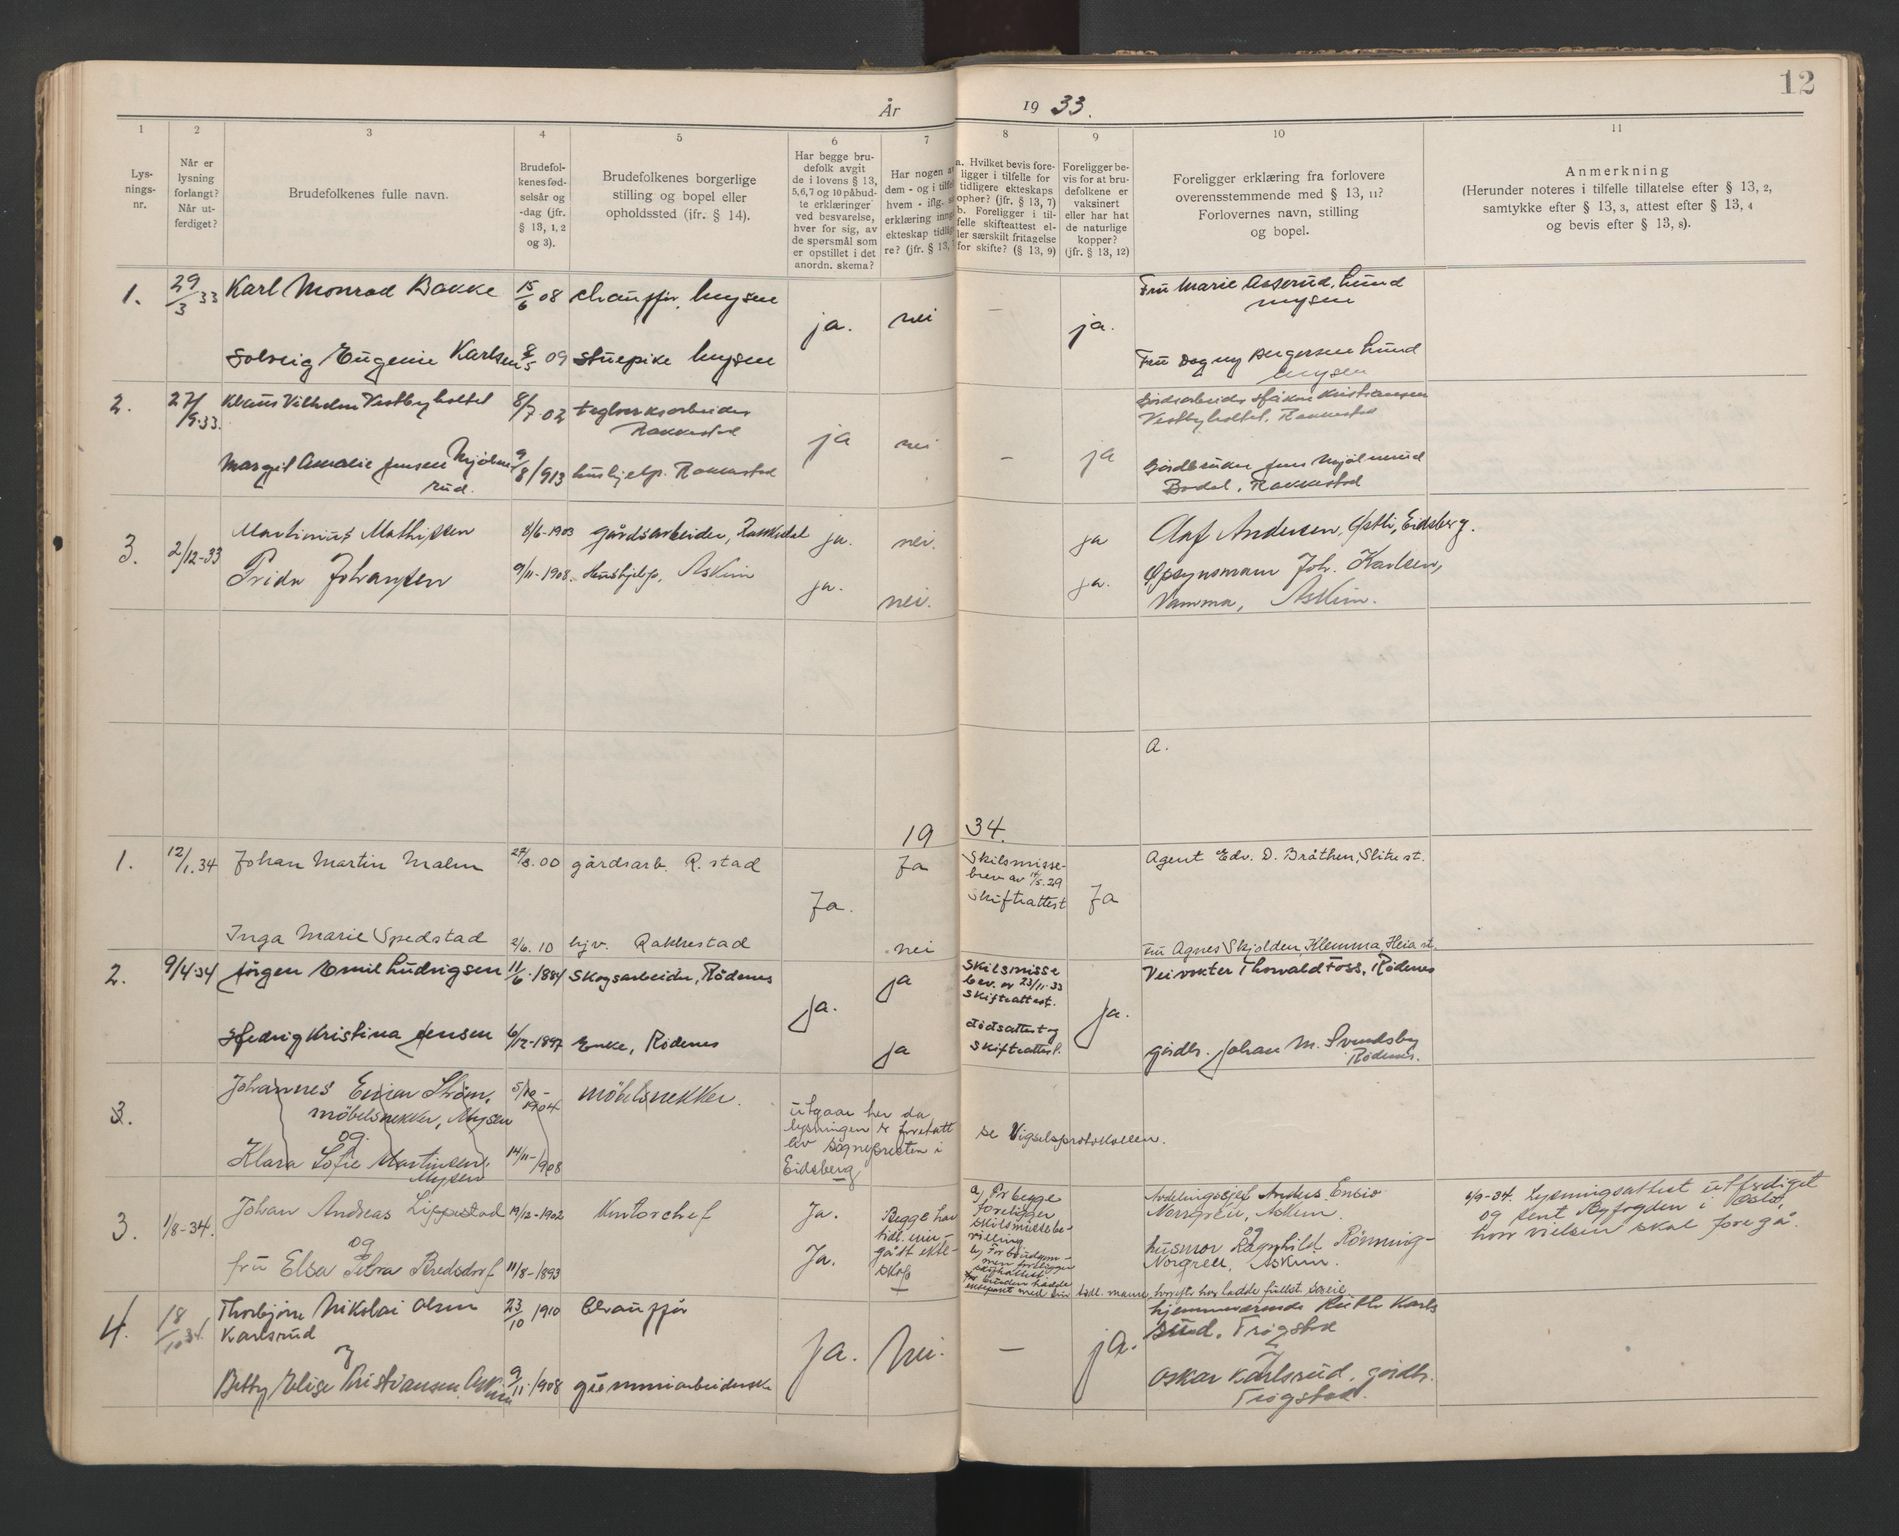 12
År 19 33.
1 2 3 4 5 6 7 8 9 10 11
Lys-
nings-
nr.
Når er
lysning
forlangt?
Når ut-
ferdiget?
Brudefolkenes fulle navn.
Brudefol-
kenes fød-
selsår og
-dag (jfr.
§ 13, 1, 2
og 3).
Brudefolkenes borgerlige
stilling og bopel eller
opholdssted (ifr. § 14).
Har begge bru-
defolk avgit
de i lovens § 13,
5, 6, 7 og 10 påbud-
te erklæringer
ved besvarelse,
hver for sig, av
de spørsmål som
er opstillet i det
anordn. skema?
Har nogen a
dem - og i tilfel
hvem - iflg. s
erklæring inng
ekteskap tidlig
re? (jfr. § 13,
a. Hvilket bevis fore-
ligger i tilfelle for
tidligere ekteskaps
ophør? (jfr. § 13, 7)
b. Foreligger i til-
felle skifteattest el-
ler særskilt fritagelse
for skifte? (§ 13, 9)
Foreligger be-
vis for at bru-
defolkene er
vaksinert
eller har hat
de naturlige
kopper?
(jfr. § 13, 12)
Foreligger erklæring fra forlovere
overensstemmende med § 13, 11?
Forlovernes navn, stilling
og bopel.
Anmerkning
(Herunder noteres i tilfelle tillatelse efter § 13, 2,
samtykke efter § 13, 3, attest efter § 13, 4
og bevis efter § 13, 8).
1. 29/3 33 Karl Monrad Bakke 15/6 08 chauffør, Mysen ja. nei — ja. Fru Marie Aaserud, Lund
Mysen
Solveig Eugenie Karlsen 8/5 09 stuepike Mysen Fru Dagny Lund
Mysen
2. 27/9.33. Klaus Vilhelm Vestbyholtet 8/7 02 teglverksarbeider
Rakkestad ja nei — ja Gårdsarbeider Håkon Kristiansen
Vestbyholtet, Rakkestad
Margit Amalie Jensen Mjølne
rud. 9/8/913 hushjelp. Rakkestad Gårdbruker Jens Mjølnerud
Bodal, Rakkestad
3. 2/12-33 Martinius Mathissen 8/6-1903 gårdsarbeider, Rakkestad ja. nei. ja Olaf Andersen, Østli, Eidsberg.
Frida Johansen 9/11-1908. Hushjelp, Askim ja. nei. ja. Opsynsmann Joh. Karlsen,
Vamma, Askim.
a.
19 34.
1. 12/1.34 Johan Martin Malm 27/3.00 gårdsarb. R.stad Ja. Ja Skilsmisse-
brev av 14/5.29
Skifteattest Ja Agent Edv. D. Bråthen, Slitu st.
Inga Marie Spedstad 2/6.10 hjv. Rakkestad nei fru Agnes Skjolden, Klemma, Heia st.
2. 9/4.34 Jørgen Emil Ludvigsen 11/6-1884 Skogsarbeider, Rødenes ja. ja Skilsmisse
bev. av 23/11.33
Skifteattest. Ja. Veivokter Thorvald Foss, Rødenes
Hedvig Kristina Jensen 6/12-1897 Enke, Rødenes ja dødsattest og
Skifteattest. gårdbr. Johan M. Svendsby
Rødenes.
3. Johannes Einar Strøm, 5/10-1904 møbelsnekker.
møbelsnekker, Mysen
og
Klara Sofie Martinsen, 14/11-1908
Mysen
utgaar her da
lysningen er foretatt
av sognepresten i
Eidsberg
se Vigselsprotokollen.
3. 1/8-34. Johan Andreas Lippestad 19/12-1902 Kontorchef Ja. Begge har
tidl. inn-
gått ekte-
skap
og
fru Elsa Petra Bredsdorf 11/8-1893 Ja.
a) For begge
foreligger
skilsmissebe-
villing
b) For brudgom-
men foreligger
skifteattest.
For bruden hadde
tidl. mann, hvorefter hun hadde fullst. særeie
Avdelingssjef Anders Ensio
Norrgren, Askim.
og
husmor Ragnhild Rønning-
Norgren, Askim.
6/9-34. Lysningsattest utferdiget
og sent Byfogden i Oslo,
hvor vielsen skal foregå.
4. 18/10 34. Thorbjørn Nikolai Olsen
Karlsrud 23/10 1910 Chauffør Ja. Nei. — ja. hjemmeværende Ruth Karls
rud, Trøgstad
Betty Elise Kristiansen, Askim 9/11.1908 gummiarbeiderske Oskar Karlsrud, gårdbr.
Trøgstad.